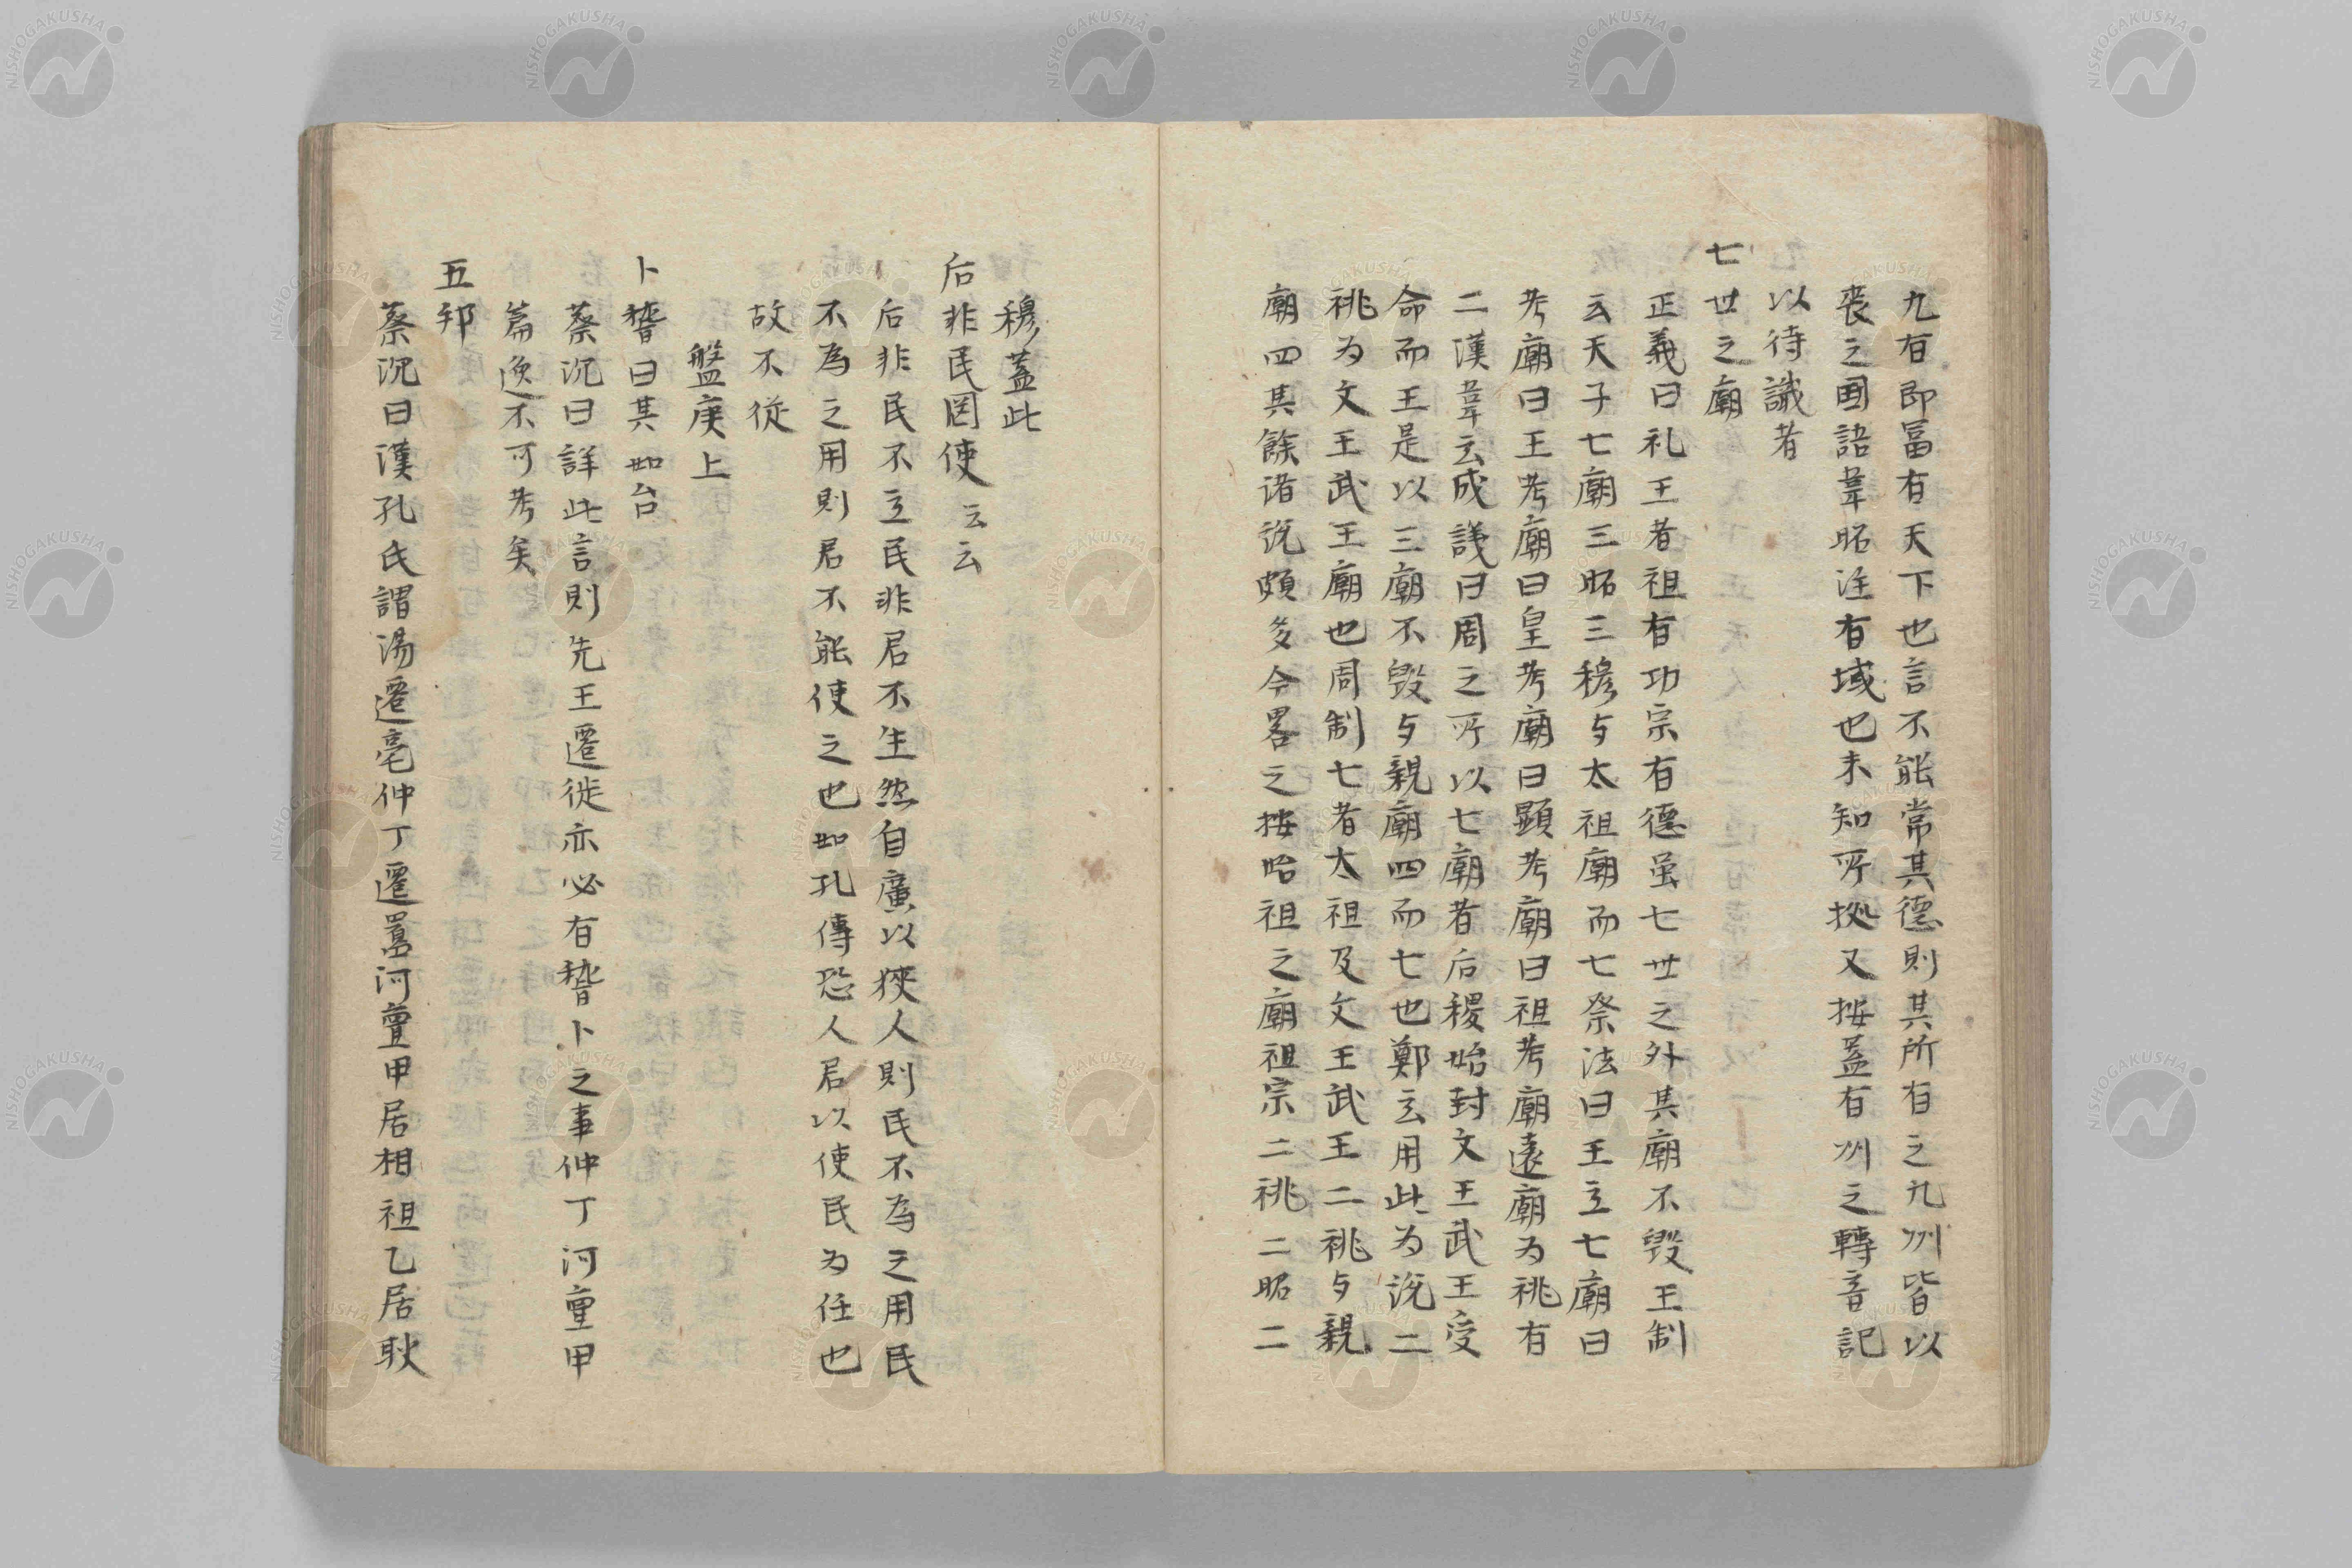 九有即冨有天下也言不能常其德則其所有之九州皆以
喪之国語韋昭注有域也未知所拠又按盖有州之轉音記
以待識者
七世之廟
正義曰礼王者祖有功宗有德虽七世之外其廟不毀王制
云天子七廟三昭三穆与太祖廟而七祭法曰王立七廟曰
考廟曰王考廟曰皇考廟曰顕考廟曰祖考廟遠廟为祧有
二漢韋云成議曰周之所以七廟者后稷始封文王武王受
命而王是以三廟不毀与親廟四而七也鄭云用此为説二
祧为文王武王廟也周制七者太祖及文王武王二祧与親
廟四其餘诸説頗多今畧之按昭祖之廟祖宗二祧二昭二
穆盖此
后非民罔使云云
后非民不立民非君不生然自廣以狹人則民不為之用民
不為之用則君不能使之也如孔傳恐人君以使民为任也
故不從
盤庚上
卜𥡴曰其如台
蔡沉曰詳此言則先王遷徙亦必有𥡴卜之事仲丁河亶甲
篇逸不可考矣
五邦
蔡沉曰漢孔氏謂湯遷亳仲丁遷囂河亶甲居相祖乙居耿
NISHOGAKUSHA